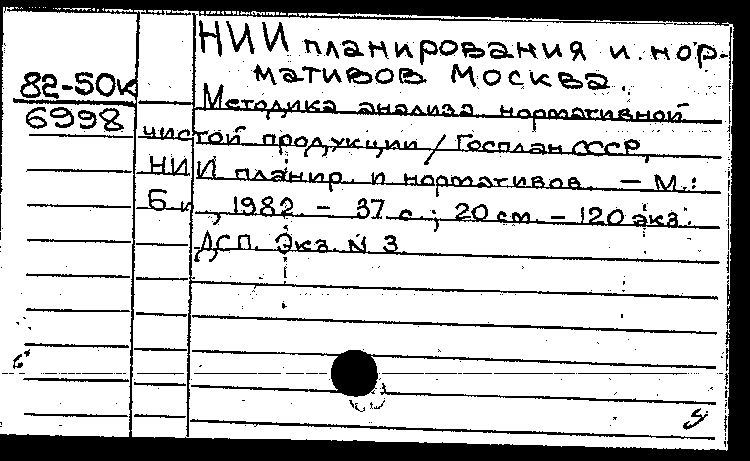 НИИ планирования и нор-
мативов Москва.
82-50к
6998
Методика анализа нормативной
чистой продукции / Госплан СССР,
НИИ планир. и нормативов. — М.:
Б. и., 1982. - 37 с.; 20 см. - 120 экз.
ДСП. Экз. N 3